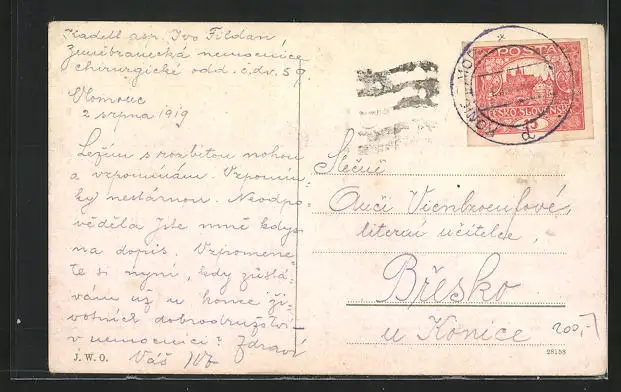 Kadett asp. Ivo Fildán,
Zeměbranecká nemocnice
chirurgické odd. č. dv. 59.
Olomouc
2 srpna 1919
Ležím s rozbitou nohou
a vzpomínám. Vzpomín-
ky nestárnou. Neodpo-
věděla jste mně kdysi
na dopis. Vzpomene-
te si nyní, kdy zůstá-
vám už u konce ži-
votních dobrodružství -
v nemocnici? Zdraví
Váš
J. W. O.
POŠTA
ČESKO-SLOVENSKÁ
15
KONICE
d
Slečně
Anči
literní učitelce,
Břesko
u Konice
200,-
28158